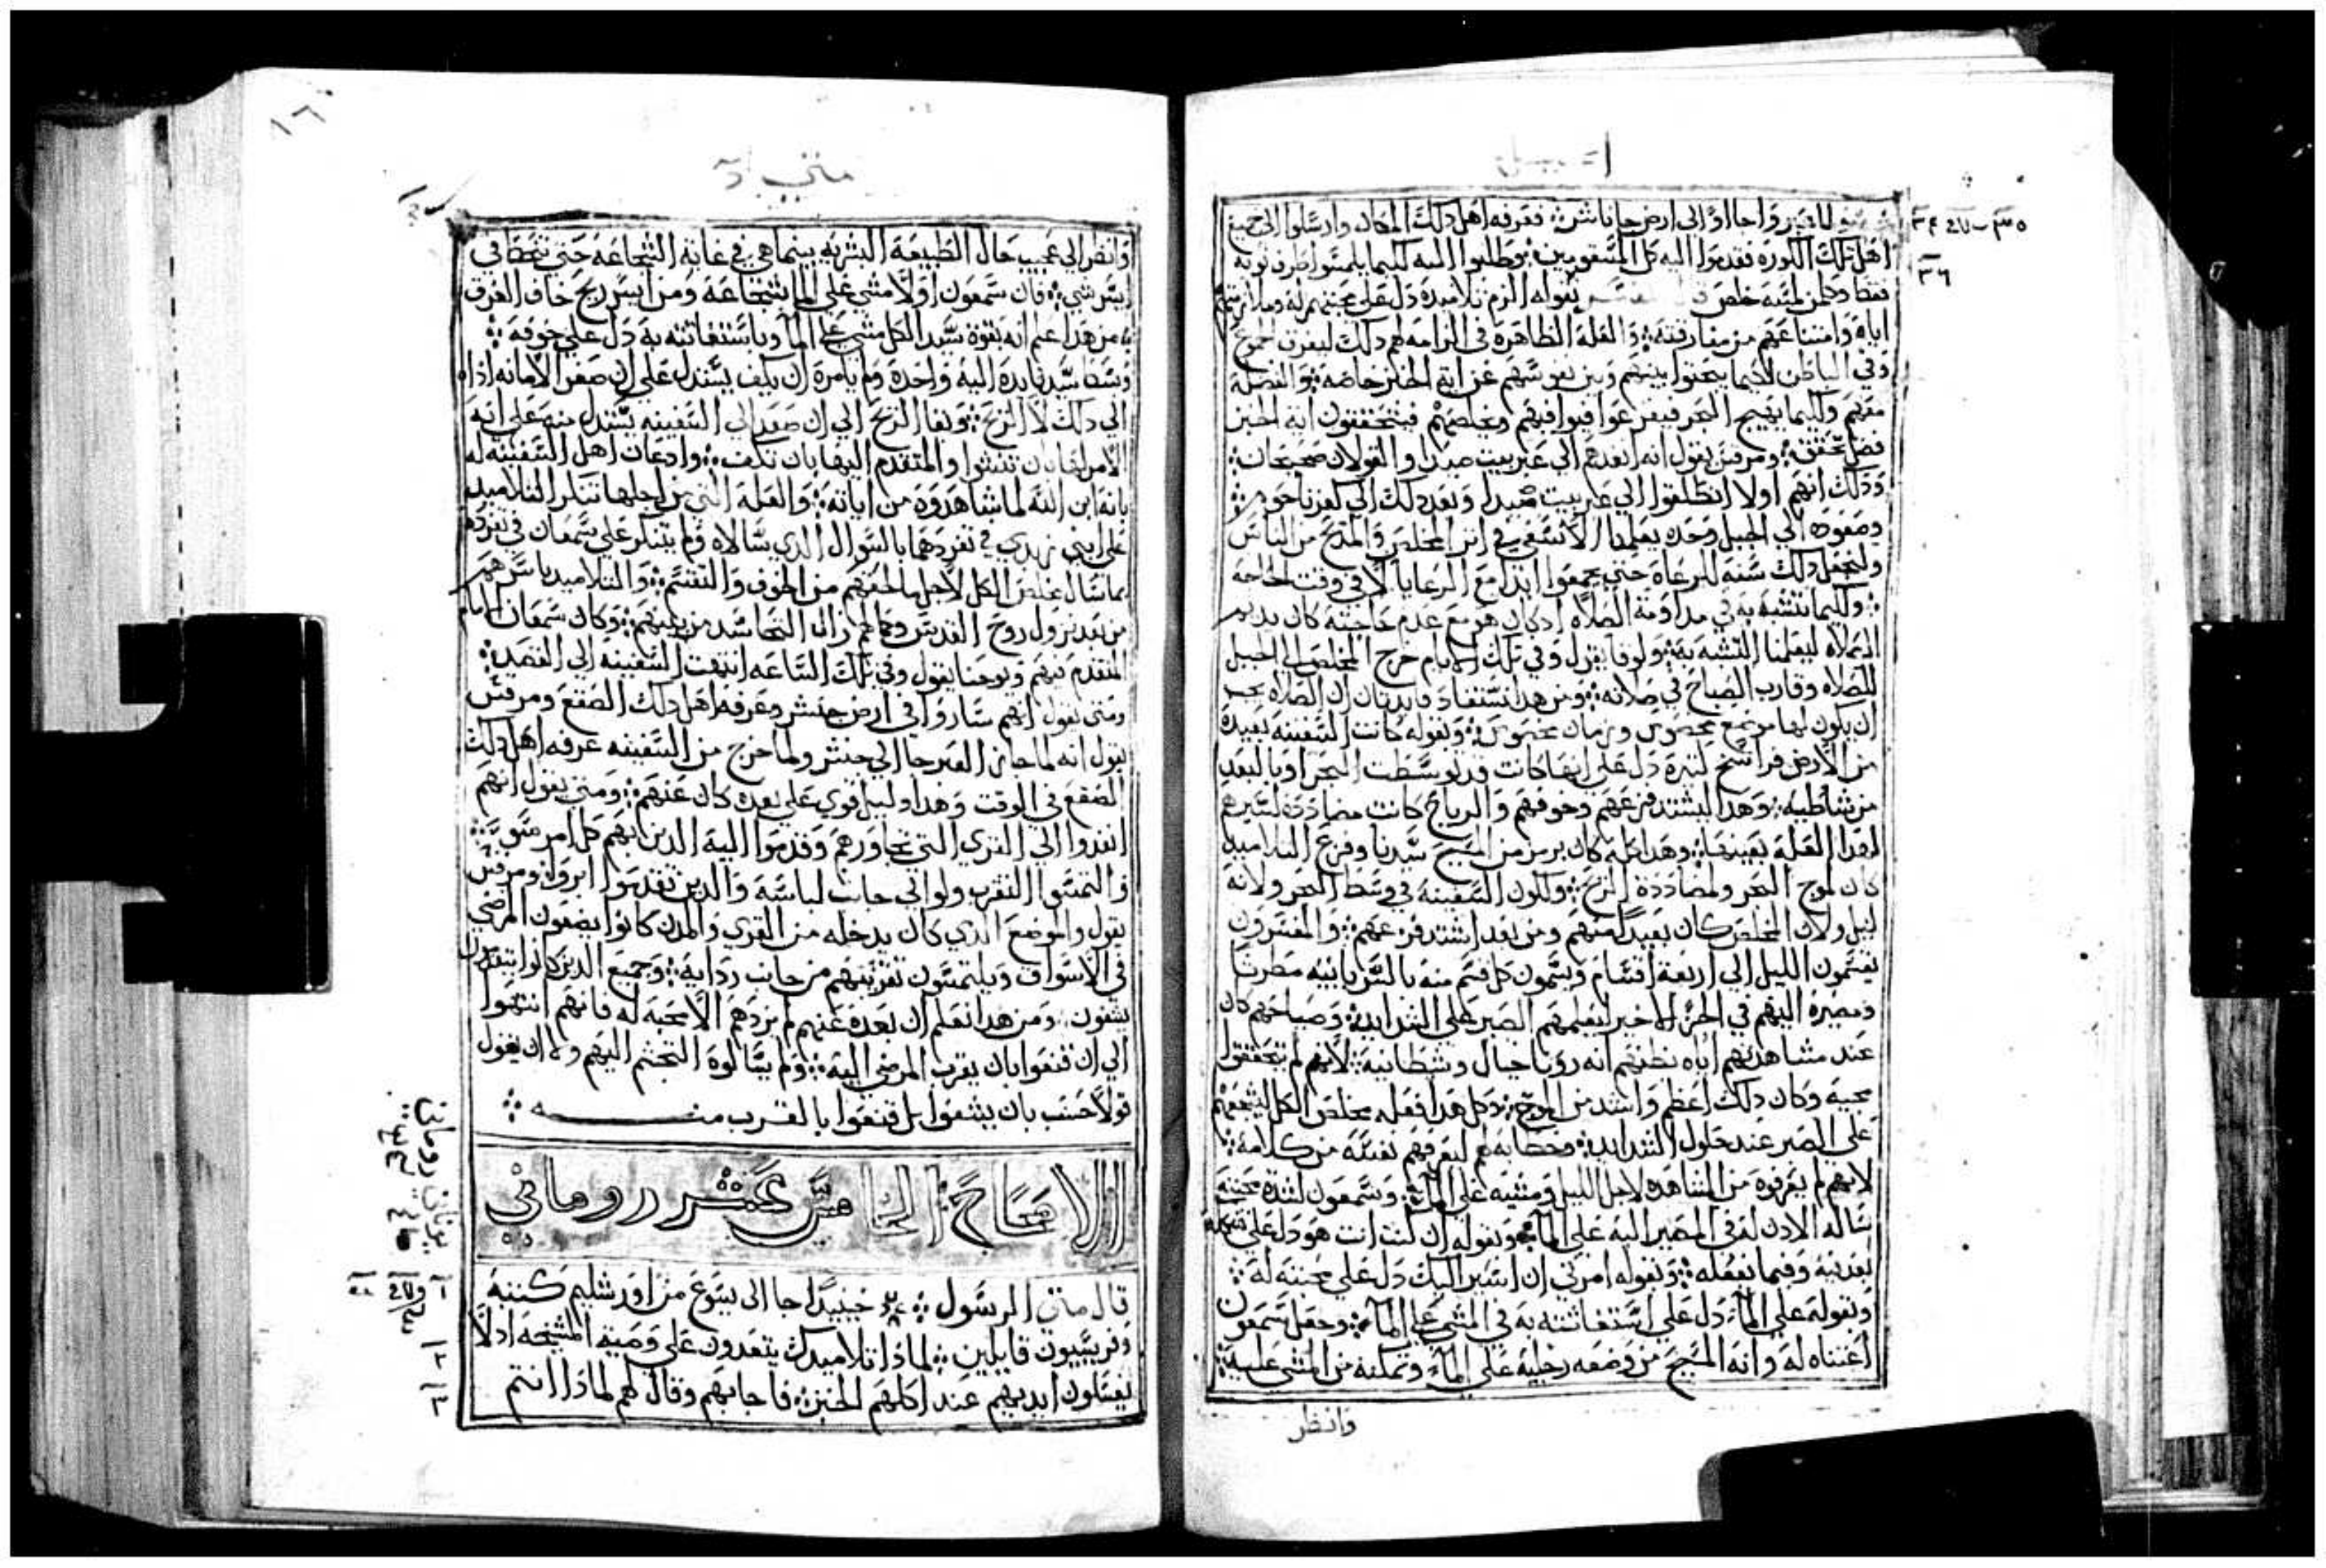 انجيل
العبر واجااوا الى ارض جاناشر ؛ فعرفه اهل دلك المكان وارسلوا الى جميع
اهل تلك الكورة فقدموا اليه كل المسقومين ؛ وطلبوا اليه كيما يلمسوا طرف توبه
فقط وكل من لمسه خلص بقوله الزم تلاميده دل على محبتهم له وملازمتهم
اياه وامتناعهم من مفارقته ؛ والعله الظاهرة في الزامه لهم دلك ليفرق الجموع
وفي الباطن لكيما يبحتوا بينهم وبين نفوسهم عن اية الخبز خاصة
معهم وكيما يهيج البحر فيفزعوا فيوافيهم ويخلصهم فيتحققون اية الخبز
فضل تحقق ؛ ومرقس يقول انه انفدهم الي عبر بيت صيدا والقولان صحيحان ؛
ودلك انهم اولا انطلقوا الي عبر بيت صيدا وبعد دلك الي كفرناحوم ؛
وصعوده الي الجبل وحده يعلمنا الا نسعى في اتر المخلص والمدح من الناس
وليجعل دلك سنه للرعاه حتي يجمعوا ابدا مع الرعايا الا في وقت الحاجه
؛ وكيما نتشبه به في مداومة الصلاه ادكان هو مع عدم حاجته كان يديم
الصلاه ليعلمنا التشبه به ؛ ولوقا يقول وفي تلك الايام خرج المخلص الى الجبل
للصلاه وقارب الصباح في صلاته ؛ ومن هدا نستفاد فايدتان ان الصلاه يجب
ان يكون لها موضع مخصوص وزمان مخصوص ؛ وبقوله كانت السفينه بعيدة
من الارض فراسخ كتيرة دل على انها كانت قد توسطت البحر وبالبعد
من شاطيه ؛ وهدا ليشتد فزعهم وخوفهم والرياح كانت مضاددة لسيرهم
لهدا العلة بعينها ؛ وهدا كله كان برمز من المسيح سيدنا وفزع التلاميد
كان لموج البحر ولمضاددة الريح ؛ ولكون السفينة في وسط البحر ولانه
ليل ولان المخلص كان بعيدا منهم ومن بعد اشتد فزعهم ؛ والمفسرون
يقسمون الليل الي اربعة اقسام ويسمون كل قسم منه بالسريانيه مطرتا
ومصيره اليهم في الجزء الاخير ليعلمهم الصبر على الشدايد ؛ وصياحهم كان
عند مشاهدتهم اياه بظنهم انه رويا خيال وشيطانية ؛ لانهم لم يتحققوا
مجيه وكان دلك اعظم واشد من الموج ؛ وكل هدا فعله مخلص الكل ليشجعهم
على الصبر عند حلول الشدايد ؛ وخطابه لهم ليعرفهم نفسه من كلامه ؛
لانهم لم يعرفوه من المشاهده لاجل الليل ومشيه على الما ؛ وسمعون لشدة محبته
ساله الادن له في المصير اليه على الما ؛ وبقوله ان كنت انت هو دل على شكه
بعدنيه وفيما يفعله ؛ وبقوله امرني ان اسير اليك دل على محبته له ؛
وبقوله على الما دل على استغاتته به في المشي على الما ؛ وجعل سمعون
اعتناه له وانه المسيح من وضعه رجليه على الما وتمكنه من المشي عليه ؛
وانظر
٣٤ ٣٥
٣٦
١٦
متي
وانظر الى عجيب حال الطبيعة البشريه بينما هي في غاية الشجاعة حتي تتحطا في
ايسر شي ؛ فان سمعون اولا مشي على الما بشجاعة ومن ايسر ريح خاف الغرق
؛ من هدا علم انه بقوة سيد الكل مشي على الما وباستغاتته به دل على خوفه ؛
وبسط سيدنا يده اليه واخده ولم يامره ان يكف يستدل على ان صغر الامانه اداه
الي دلك لا الريح ؛ وبقا الريح الي ان صعد الي السفينه يستدل منه على انه
الامر لها بان تنشوا والمتقدم اليها بان تكف ؛ وادعان اهل السفينه له
بانه ابن الله لما شاهدوه من اياته ؛ والعلة التي من اجلها تنكر التلاميد
على ابني زبدي في تفردهما بالسوال الدي سالاه ولم يتنكر على سمعان في تفرده
بما سال مخلص الكل لاجل ما لحقهم من الخوف والتقسم ؛ والتلاميد باسرهم
من بعد نزول روح القدس وحمالهم زال التحاسد من بينهم ؛ وكان سمعان الامام
المتقدم فيهم ويوحنا يقول وفي تلك الساعه انتهت السفينه الي القصد ؛
ومتي يقول انهم ساروا في ارض جنشر وعرفه اهل دلك الصقع ومرقس
يقول انه لما جاز العبر جا الي جنشر ولما خرج من السفينه عرفه اهل دلك
الصقع في الوقت وهدا دليل قوي على بعده كان عنهم ؛ ومتي يقول انهم
انفدوا الي القري التي تجاورهم وقدموا اليه الدين بهم كل امر متوي ؛
والتمسوا التقرب ولو الي جانب لباسه والدين تقدموا ابروا ؛ ومرقس
يقول والموضع الدي كان يدخله من القري والمدن كانوا يضعون المرضي
في الاسواق ويلتمسون تقريبهم من جانب ردايه ؛ وجميع الدين كانوا يتقدمون
يشفون ؛ ومن هدا نعلم ان بعده عنهم لم يزدهم الا محبة له فانهم انتهوا
الي ان قنعوا بان يقرب المرضي اليه ؛ ولم يسالوه التجشم اليهم ولا ان يقول
قولا حسب بان يشفوا بل قنعوا بالقرب منه ؛
الاصحاح الخامس عشر روماني
قال متي الرسول ؛ حينيدا جا الى يسوع من اورشليم كتبة
وفريسيون قايلين ؛ لمادا تلاميدك يتعدون على وصية المشيخه اد لا
يغسلون ايديهم عند اكلهم الخبز ؛ فاجابهم وقال لهم لمادا انتم
١
٢
٣